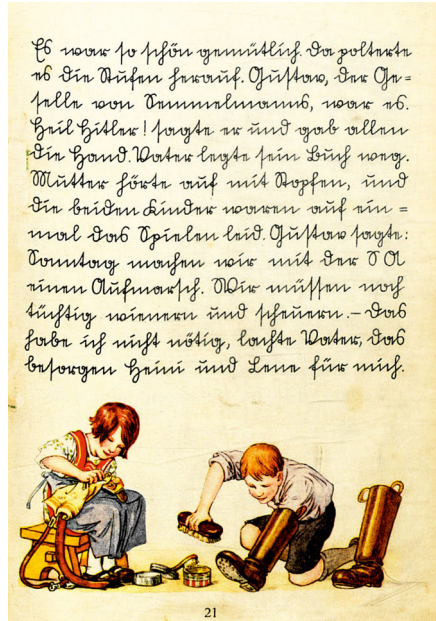 Es war so schön gemütlich. Da polterte
es die Stufen herauf. Gustav, der Ge=
selle von Semmelmanns, war es.
Heil Hitler! sagte er und gab allen
die Hand. Vater legte sein Buch weg.
Mutter hörte auf mit Stopfen, und
die beiden Kinder waren auf ein=
mal das Spielen leid. Gustav sagte:
Sonntag machen wir mit der S A
einen Aufmarsch. Wir müssen noch
tüchtig wienern und scheuern. – Das
habe ich nicht nötig, lachte Vater, das
besorgen Heini und Lene für mich.
21